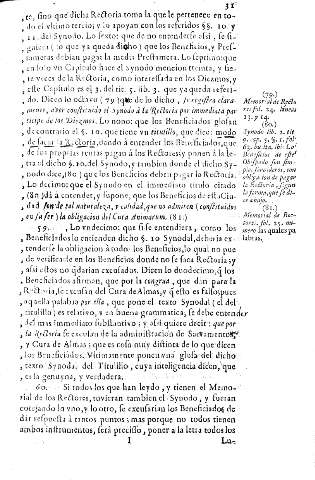 31
te, sino que dicha Rectoria toma la que le pertenece en to-
do el vltimo tercio; y lo apoyan con los referidos §§. 10. y
11. del Synodo. Lo sexto: que de no entenderse assi, se si-
guiera (lo que ya queda dicho) que los Beneficios, y Pres-
timeras debian pagar la media Prestimera. Lo septimo: que
en todo vn Capitulo hace el Synodo mencion treinta, y sie-
te veces de la Rectoria, como interessada en los Diezmos, y
este Capitulo es el 3. del tit. 5. lib. 3. que ya queda referi-
do. Dicen lo octavo (79.) que de lo dicho, se registra clara-
mente, aver constituido el synodo à la Rectoria por immediata par-
ticipe de los Diezmos. Lo nono: que los Beneficios glosan
de contrario el §. 10. que tiene vn titulillo, que dice: modo
de sacar la Rectoria, dando à entender los Beneficios, que
de sus proprias rentas pagan à los Rectores, y ponen à la le-
tra el dicho §. 10. del Synodo, y tambien donde el dicho Sy-
nodo dice, (80.) que los Beneficios deben pagar la Rectoria.
Lo decimo: que el Synodo en el immediato titulo citado
(80.) dà à entender, y supone, que los Beneficios de esta Ciu-
dad son de tal naturaleza, y calidad, que no admiten (constituidos
en su ser) la obligacion del Cura Animarum. (81.)
59. Lo vndecimo: que si se entendiera, como los
Beneficiados lo entienden dicho §. 10. Synodal, deberia es-
tenderse la obligacion à todos los Beneficios, lo qual no pue-
de verificarse en los Beneficios donde no se saca Rectoria; y
assi estos no quedarian excusados. Dicen lo duodecimo, que los
Beneficiados afirman, que por la congrua, que dan para la
Rectoria, se excusan del Cura de Almas, y q̃ esto es falso; pues
aquella palabra por esta, que pone el texto Synodal (el del
titulillo) es relativo, y en buena grammatica, se debe entender
del mas immediato substantivo; y assi quiere decir: que por
la Rectoria se excusan de la administracion de Sacramentos,
y Cura de Almas: que es cosa muy distinta de lo que dicen
los Beneficiados. Vltimamente ponen vna glosa del dicho
texto Synodal del Titulillo, cuya inteligencia dicen, que
es la genuyna, y verdadera.
60. Si todos los que han leydo, y tienen el Memo-
rial de los Rectores, tuvieran tambien el Synodo, y fueran
cotejando lo vno, y lo otro, se excusarian los Beneficiados de
dàr respuesta à tantos puntos; mas porque no todos tienen
ambos instrumentos, serà precisso, poner à la letra todos los
I
Lu-
(79.)
Memorial de Recto
res fol. 24. linea
13. y 14.
(80.)
Synodo lib. 1. tit.
(81.)
Memorial de Rec-
tores, fol. 25. nu-
mero
labras,